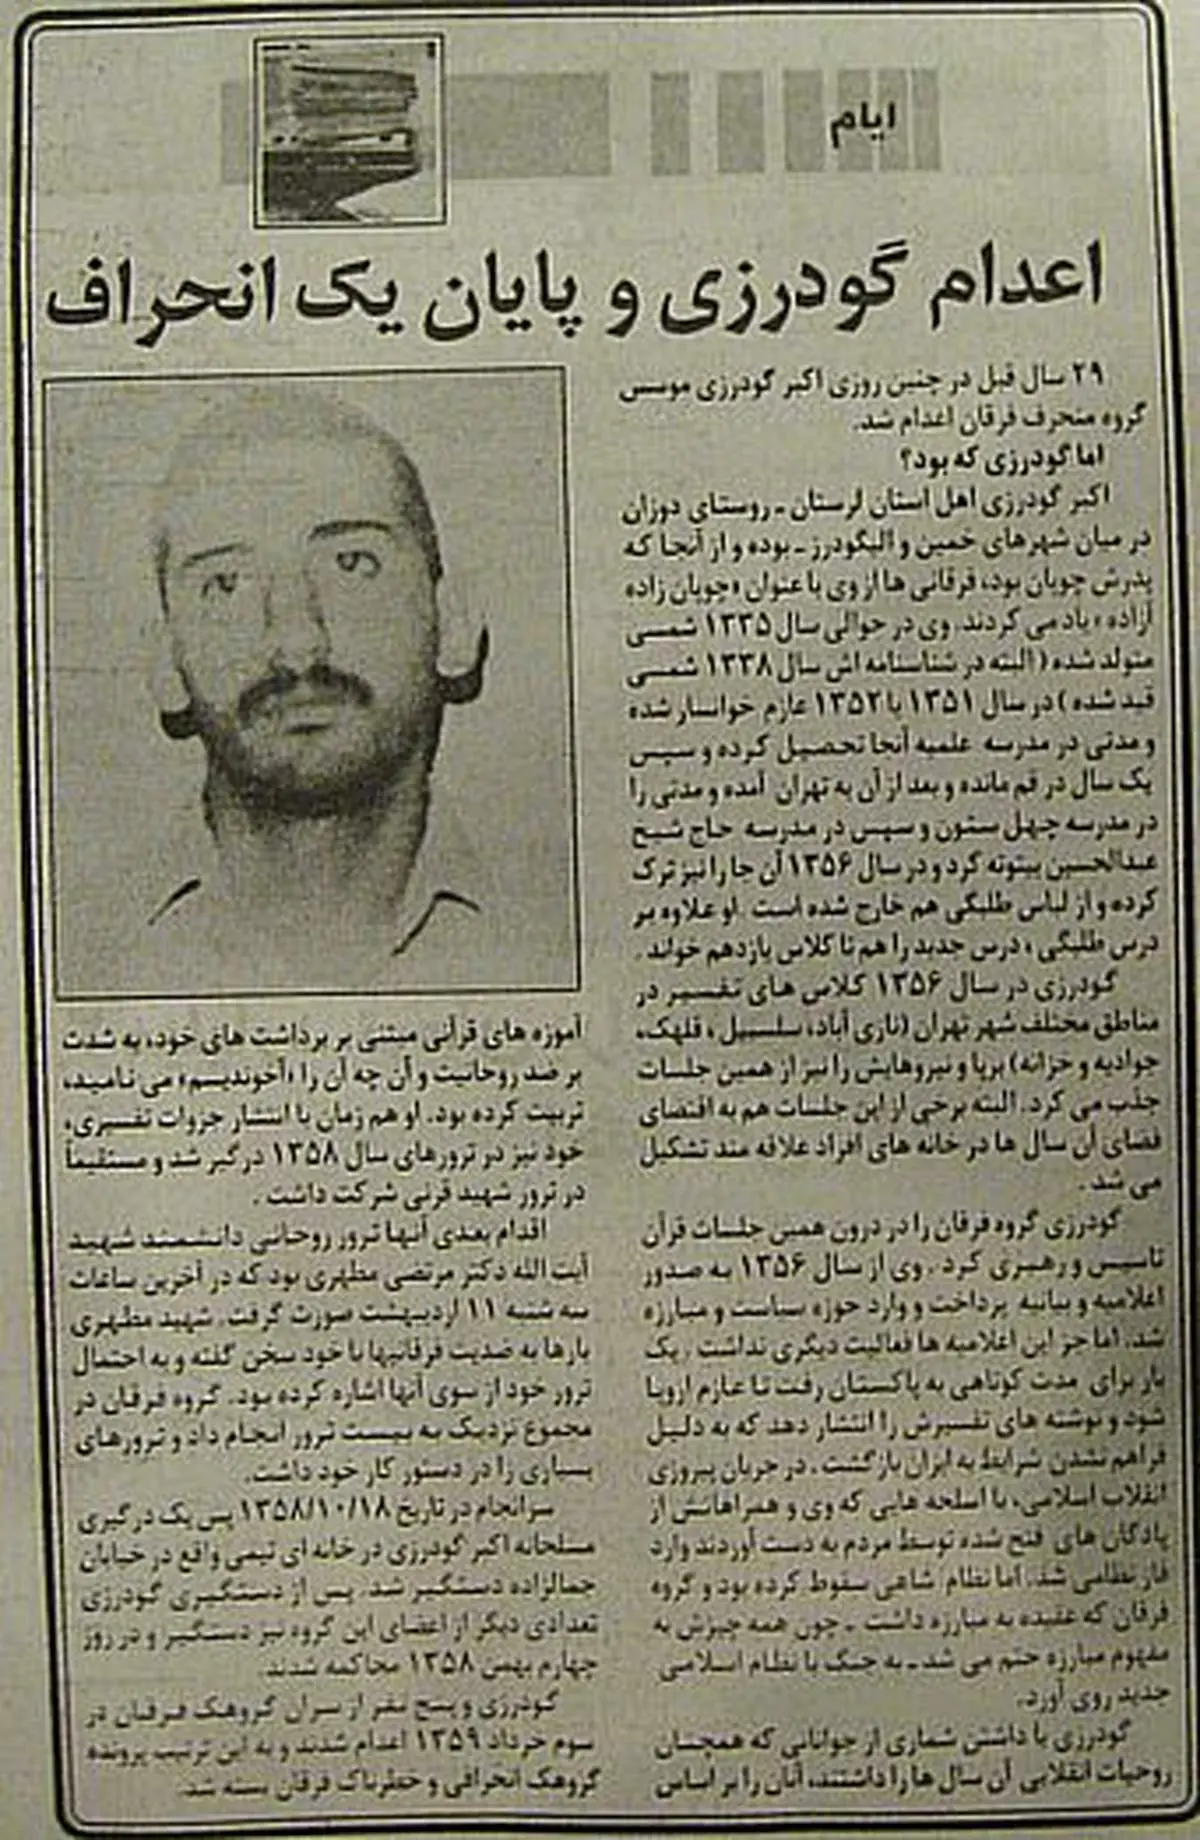 ایام
اعدام گودرزی و پایان یک انحراف
۲۹ سال قبل در چنین روزی اکبر گودرزی موسس
گروه منحرف فرقان اعدام شد.
اما گودرزی که بود؟
اکبر گودرزی اهل استان لرستان ـ روستای دوزان
در میان شهرهای خمین و الیگودرز ـ بوده و از آنجا که
پدرش چوپان بود، فرقانی ها از وی با عنوان «چوپان زاده
آزاده» یاد می کردند. وی در حوالی سال ۱۳۳۵ شمسی
متولد شده ( البته در شناسنامه اش سال ۱۳۳۸ شمسی
قید شده ) در سال ۱۳۵۱ یا ۱۳۵۲ عازم خوانسار شده
و مدتی در مدرسه علمیه آنجا تحصیل کرده و سپس
یک سال در قم مانده و بعد از آن به تهران آمده و مدتی را
در مدرسه چهل ستون و سپس در مدرسه حاج شیخ
عبدالحسین بیتوته کرد و در سال ۱۳۵۶ آن جا را نیز ترک
کرده و از لباس طلبگی هم خارج شده است. او علاوه بر
درس طلبگی ، درس جدید را هم تا کلاس یازدهم خواند .
گودرزی در سال ۱۳۵۶ کلاس های تفسیر در
مناطق مختلف شهر تهران (نازی آباد، سلسبیل، قلهک،
جوادیه و خزانه) برپا و نیروهایش را نیز از همین جلسات
جذب می کرد. البته برخی از این جلسات هم به اقتضای
فضای آن سال ها در خانه های افراد علاقه مند تشکیل
می شد .
گودرزی گروه فرقان را در درون همین جلسات قرآن
تاسیس و رهبری کرد . وی از سال ۱۳۵۶ به صدور
اعلامیه و بیانیه پرداخت و وارد حوزه سیاست و مبارزه
شد. اما جز این اعلامیه ها فعالیت دیگری نداشت . یک
بار برای مدت کوتاهی به پاکستان رفت تا عازم اروپا
شود و نوشته های تفسیرش را انتشار دهد که به دلیل
فراهم نشدن شرایط به ایران بازگشت . در جریان پیروزی
انقلاب اسلامی، با اسلحه هایی که وی و همراهانش از
پادگان های فتح شده توسط مردم به دست آوردند وارد
فاز نظامی شد. اما نظام شاهی سقوط کرده بود و گروه
فرقان که عقیده به مبارزه داشت ـ چون همه چیزش به
مفهوم مبارزه ختم می شد ـ به جنگ با نظام اسلامی
جدید روی آورد.
گودرزی با داشتن شماری از جوانانی که همچنان
روحیات انقلابی آن سال ها را داشتند، آنان را بر اساس
آموزه های قرآنی مبتنی بر برداشت های خود، به شدت
بر ضد روحانیت و آن چه آن را «آخوندیسم» می نامید،
تربیت کرده بود. او هم زمان با انتشار جزوات تفسیری،
خود نیز در ترورهای سال ۱۳۵۸ درگیر شد و مستقیماً
در ترور شهید قرنی شرکت داشت .
اقدام بعدی آنها ترور روحانی دانشمند شهید
آیت الله دکتر مرتضی مطهری بود که در آخرین ساعات
سه شنبه ۱۱ اردیبهشت صورت گرفت. شهید مطهری
بارها به ضدیت فرقانیها با خود سخن گفته و به احتمال
ترور خود از سوی آنها اشاره کرده بود. گروه فرقان در
مجموع نزدیک به بیست ترور انجام داد و ترورهای
بسیاری را در دستور کار خود داشت.
سرانجام در تاریخ ۱۳۵۸/۱۰/۱۸ پس یک درگیری
مسلحانه اکبر گودرزی در خانه ای تیمی واقع در خیابان
جمالزاده دستگیر شد. پس از دستگیری گودرزی
تعدادی دیگر از اعضای این گروه نیز دستگیر و در روز
چهارم بهمن ۱۳۵۸ محاکمه شدند
گودرزی و پنج نفر از سران گروهک فرقان در
سوم خرداد ۱۳۵۹ اعدام شدند و به این ترتیب پرونده
گروهک انحرافی و خطرناک فرقان بسته شد.